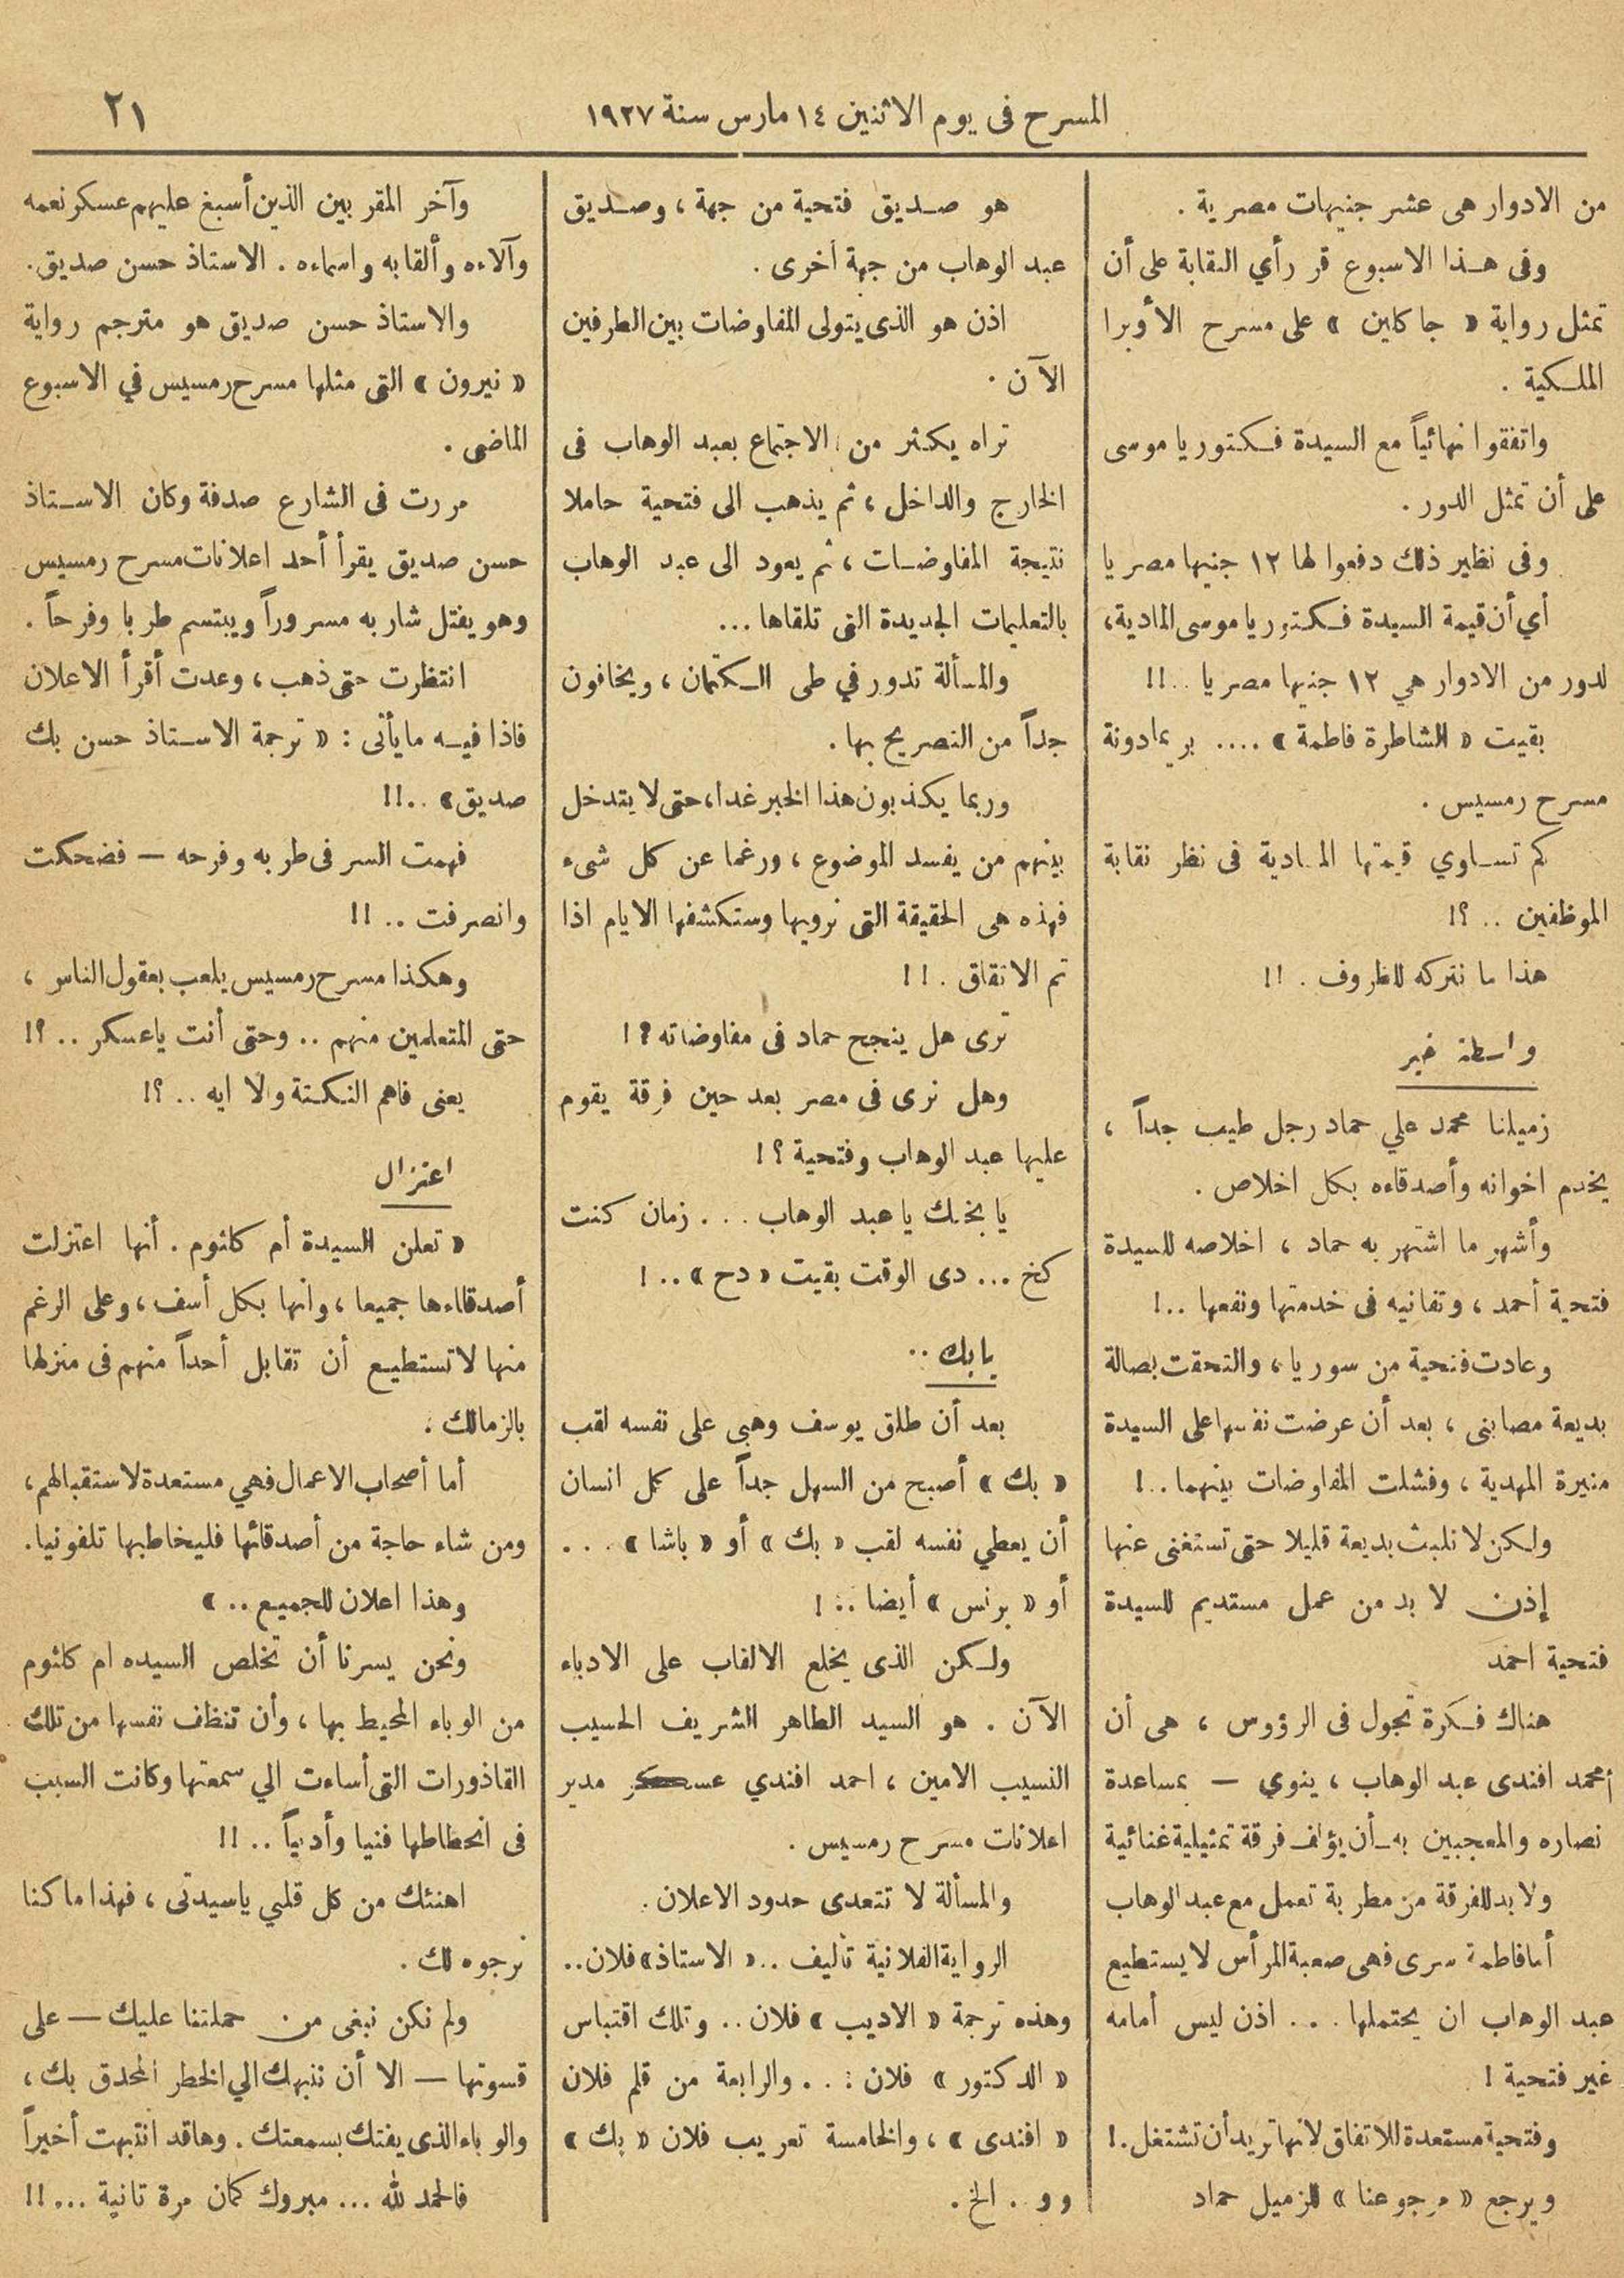 المسرح فى يوم الاثنين ١٤ مارس سنة ١٩٢٧
٢١
من الادوار هى عشر جنيهات مصرية .
وفى هذا الاسبوع قر رأي النقابة على أن
تمثل رواية « جاكلين » على مسرح الأوبرا
الملكية .
واتفقوا نهائياً مع السيدة فكتوريا موسى
على أن تمثل الدور .
وفى نظير ذلك دفعوا لها ١٢ جنيها مصريا
أي أن قيمة السيدة فكتوريا موسى المادية،
لدور من الادوار هي ١٢ جنيها مصريا ..!!
بقيت « الشاطرة فاطمة » .... بريمادونة
مسرح رمسيس .
كم تساوي قيمتها المادية فى نظر نقابة
الموظفين .. ؟!
هذا ما نتركه للظروف . !!
واسطة خير
زميلنا محمد علي حماد رجل طيب جداً ،
يخدم اخوانه وأصدقاءه بكل اخلاص .
وأشهر ما اشتهر به حماد ، اخلاصه للسيدة
فتحية أحمد ، وتفانيه فى خدمتها ونفعها ..!
وعادت فتحية من سوريا، والتحقت بصالة
بديعة مصابنى ، بعد أن عرضت نفسها على السيدة
منيرة المهدية ، وفشلت المفاوضات بينهما ..!
ولكن لا تلبث بديعة قليلا حتى تستغنى عنها
إذن لا بد من عمل مستديم للسيدة
فتحية احمد
هناك فكرة تجول فى الرؤوس ، هى أن
محمد افندى عبد الوهاب ، ينوي — بمساعدة
نصاره والمعجبين به ـ أن يؤلف فرقة تمثيلية غنائية
ولا بد للفرقة من مطربة تعمل مع عبد الوهاب
أما فاطمة سرى فهى صعبة المرأس لا يستطيع
عبد الوهاب ان يحتملها . . . اذن ليس أمامه
غير فتحية !
وفتحية مستعدة للاتفاق لانها تريد أن تشتغل .!
ويرجع « مرجوعنا » للزميل حماد
هو صديق فتحية من جهة ، وصديق
عبد الوهاب من جهة أخرى .
اذن هو الذى يتولى المفاوضات بين الطرفين
الآن .
تراه يكثر من الاجتماع بعبد الوهاب فى
الخارج والداخل ، ثم يذهب الى فتحية حاملا
نتيجة المفاوضات ، ثم يعود الى عبد الوهاب
بالتعليمات الجديدة التى تلقاها ...
والمسألة تدور في طى الكتمان ، ويخافون
جداً من التصريح بها .
وربما يكذبون هذا الخبر غدا، حتى لا يتدخل
بينهم من يفسد الموضوع ، ورغما عن كل شىء
فهذه هى الحقيقة التى نرويها وستكشفها الايام اذا
تم الاتفاق . !!
ترى هل ينجح حماد فى مفاوضاته ؟ !
وهل نرى فى مصر بعد حين فرقة يقوم
عليها عبد الوهاب وفتحية ؟ !
يا بختك يا عبد الوهاب . . . زمان كنت
كخ ... دى الوقت بقيت « دح » .. !
يا بك ..
بعد أن طلق يوسف وهبى على نفسه لقب
« بك » أصبح من السهل جداً على كل انسان
أن يعطي نفسه لقب « بك » أو « باشا » . . .
أو « برنس » أيضا .. !
ولكن الذى يخلع الالقاب على الادباء
الآن . هو السيد الطاهر الشريف الحسيب
النسيب الامين ، احمد افندي عسكر مدير
اعلانات مسرح رمسيس .
والمسألة لا تتعدى حدود الاعلان .
الرواية الفلانية تأليف .. « الاستاذ » فلان ..
وهذه ترجمة « الاديب » فلان .. وتلك اقتباس
« الدكتور » فلان . . . والرابعة من قلم فلان
« افندى » ، والخامسة تعريب فلان « بك »
وو . الخ .
وآخر المقربين الذين أسبغ عليهم عسكر نعمه
وآلاءه وألقابه واسماءه . الاستاذ حسن صديق.
والاستاذ حسن صديق هو مترجم رواية
« نيرون » التى مثلها مسرح رمسيس في الاسبوع
الماضى .
مررت فى الشارع صدفة وكان الاستاذ
حسن صديق يقرأ أحد اعلانات مسرح رمسيس
وهو يفتل شاربه مسروراً ويبتسم طربا وفرحاً .
انتظرت حتى ذهب ، وعدت أقرأ الاعلان
فاذا فيه ما يأتى : « ترجمة الاستاذ حسن بك
صديق » ..!!
فهمت السر فى طربه وفرحه — فضحكت
وانصرفت .. !!
وهكذا مسرح رمسيس يلعب بعقول الناس ،
حتى المتعلمين منهم .. وحتى أنت ياعسكر .. ؟!
يعنى فاهم النكتة والا ايه .. ؟!
اعتزال
« تعلن السيدة أم كلثوم . أنها اعتزلت
أصدقاءها جميعا ، وانها بكل أسف ، وعلى الرغم
منها لا تستطيع أن تقابل أحداً منهم فى منزلها
بالزمالك .
أما أصحاب الاعمال فهي مستعدة لاستقبالهم ،
ومن شاء حاجة من أصدقائها فليخاطبها تلفونيا.
وهذا اعلان للجميع .. »
ونحن يسرنا أن تخلص السيده ام كلثوم
من الوباء المحيط بها ، وأن تنظف نفسها من تلك
القاذورات التى أساءت الي سمعتها وكانت السبب
فى انحطاطها فنيا وأدبياً .. !!
اهنئك من كل قلبي ياسيدتى ، فهذا ما كنا
نرجوه لك .
ولم نكن نبغى من حملتنا عليك — على
قسوتها — الا أن ننبهك الي الخطر المحدق بك ،
والوباء الذى يفتك بسمعتك . وها قد انتبهت أخيراً
فالحمد لله ... مبروك كمان مرة تانية ... !!